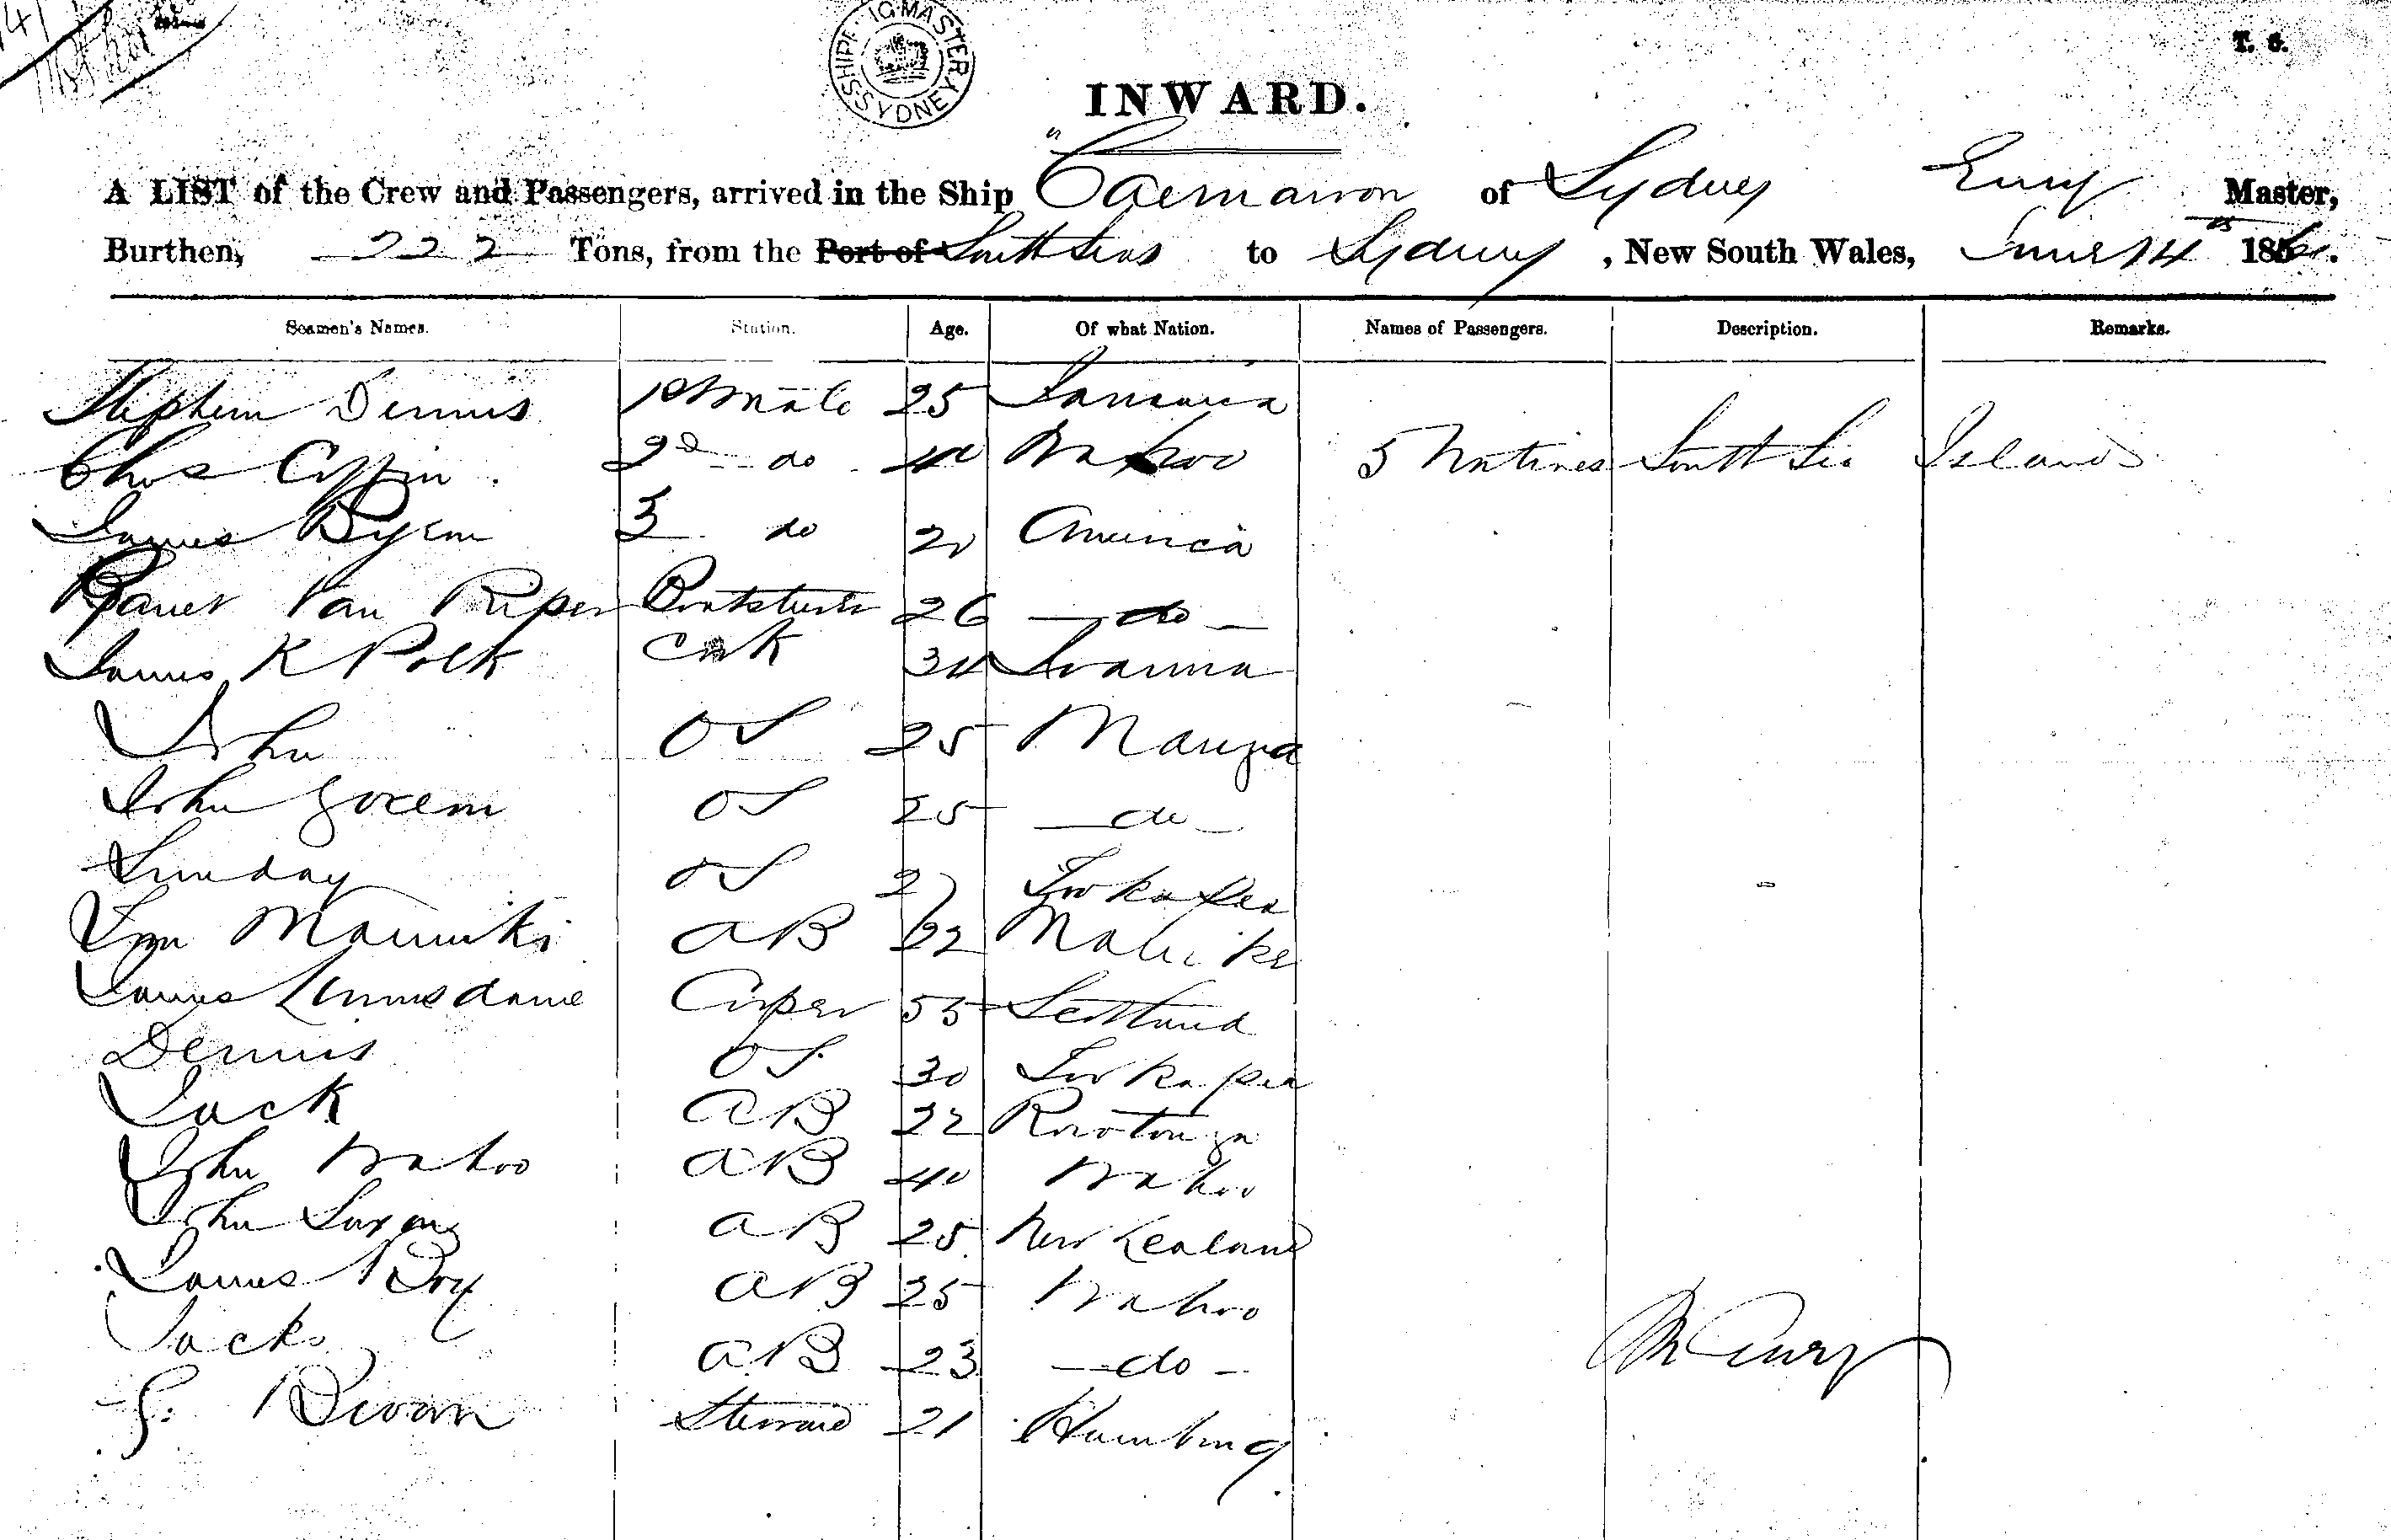 T. S.
SHIPPING MASTER SYDNEY
INWARD.
A LIST of the Crew and Passengers, arrived in the Ship "Caernarvon of Sydney Master,
Burthen, 222 Tons, from the Port of South Seas to Sydney, New South Wales, June 14 186
Seamen's Names. Station. Age. Of what Nation. Names of Passengers. Description. Remarks.
Stephen Dennis 1st Mate 25 Jamaica
Chas Coffin 2d do 40 Wahoo 5 Natives South Sea Islands
James Byron 3 do America
Van Riper Boatsteerer 26 do
James K Polk Cook 34
John OS 25 Mangea
John OS 25 do
Sunday OS 27
AB 22
James Lumsdane Cooper 55 Scotland
Dennis OS 30
Jack AB 22 Rorotonga
John Wahoo AB 40 Wahoo
John AB 25 New Zealand
James Boy AB 25 Wahoo
Jacko AB 23 do
Steward 21 Hamburg